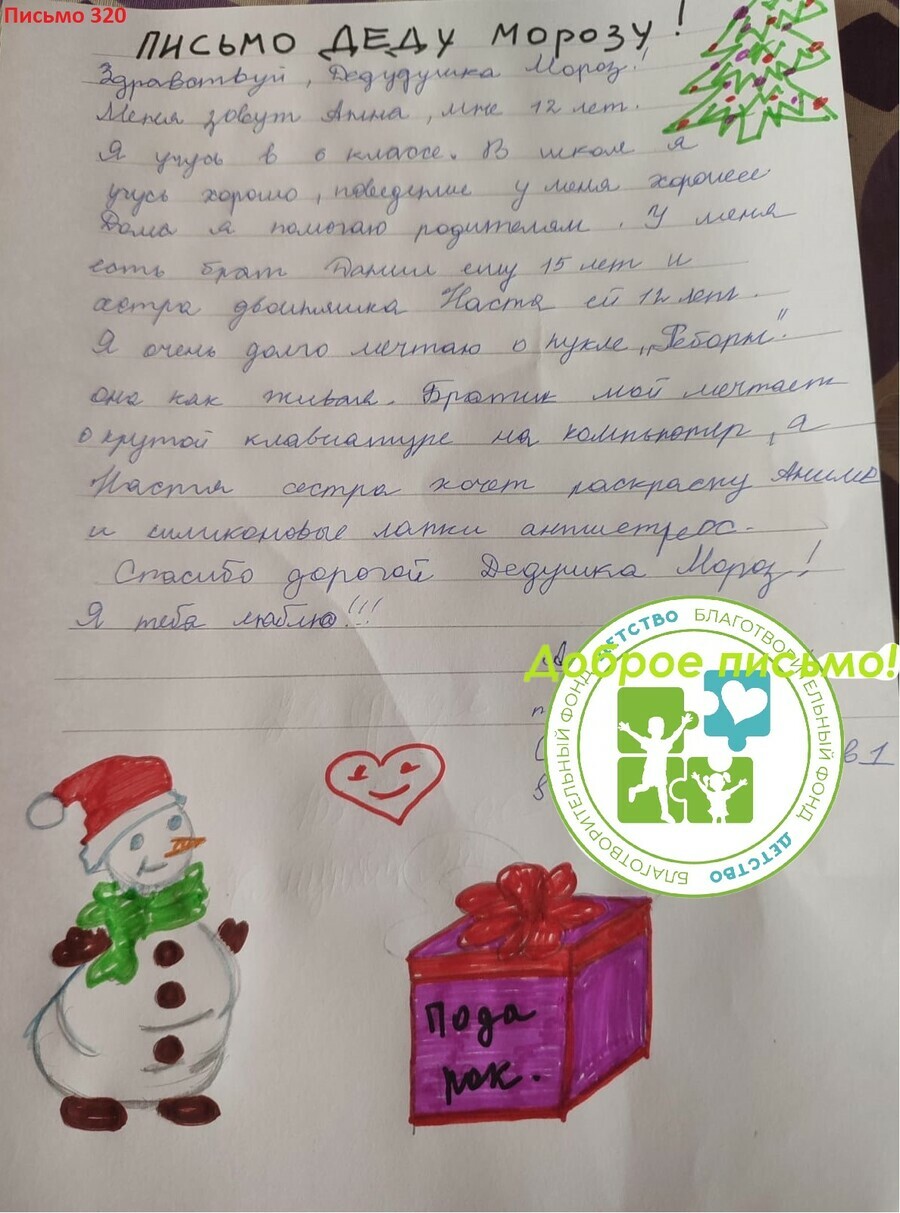 Письмо 320
ПИСЬМО ДЕДУ МОРОЗУ!
Здравствуй, Дедудушка Мороз!
Меня зовут Анна, мне 12 лет.
Я учусь в 6 классе. В школе я
учусь хорошо, поведение у меня хорошее
Дома я помогаю родителям. У меня
есть брат Данил ему 15 лет и
сестра двойняшка Настя ей 12 лет.
Я очень долго мечтаю о кукле „Реборн"
она как живая. Братик мой мечтает
о крутой клавиатуре на компьютер, а
Настя сестра хочет раскраску Аниме
и силиконовые лапки антистресс.
Спасибо дорогой Дедушка Мороз!
Я тебя люблю!!!
Доброе письмо!
БЛАГОТВОРИТЕЛЬНЫЙ ФОНД ДЕТСТВО
БЛАГОТВОРИТЕЛЬНЫЙ ФОНД ДЕТСТВО
в 1
Пода
рок.